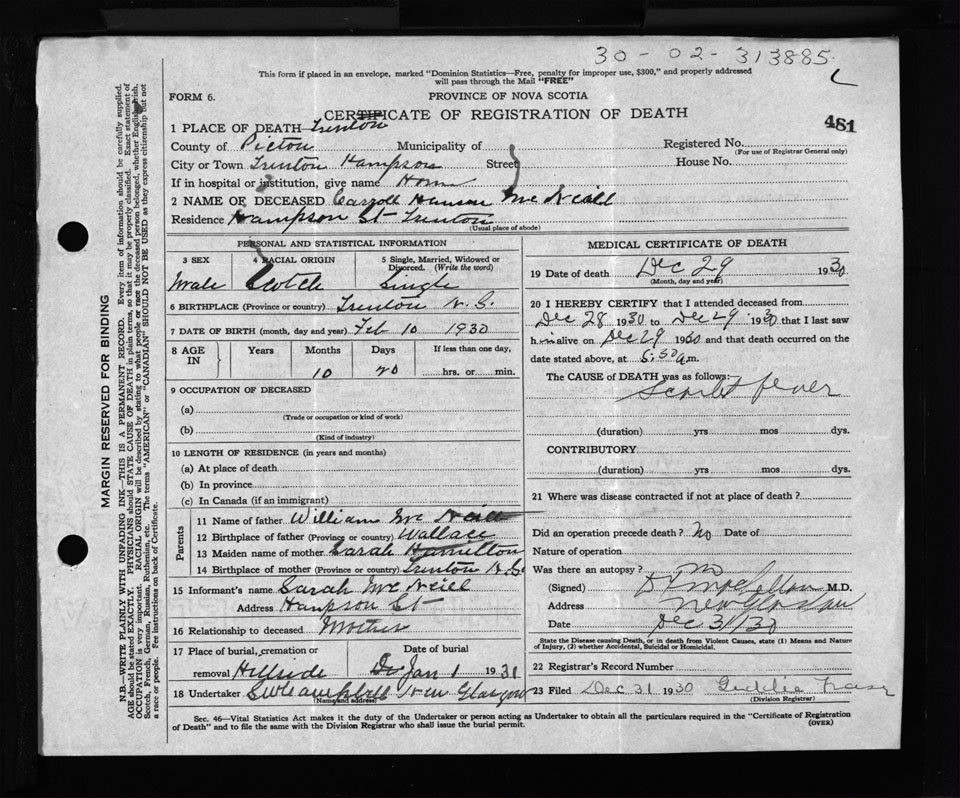 30 - 02 - 313885
This form if placed in an envelope, marked "Dominion Statistics—Free, penalty for improper use, $300," and properly addressed
will pass through the Mail "FREE"
FORM 6.
PROVINCE OF NOVA SCOTIA
CERTIFICATE OF REGISTRATION OF DEATH
481
1 PLACE OF DEATH Trenton
County of Pictou Municipality of Registered No.
(For use of Registrar General only)
City or Town Trenton Hampson Street House No.
If in hospital or institution, give name Home
2 NAME OF DECEASED Carroll McNeill
Residence Hampson St Trenton
(Usual place of abode)
PERSONAL AND STATISTICAL INFORMATION
3 SEX 4 RACIAL ORIGIN 5 Single, Married, Widowed or
Divorced. (Write the word)
Male Scotch Single
6 BIRTHPLACE (Province or country) Trenton N.S.
7 DATE OF BIRTH (month, day and year) Feb 10 1930
8 AGE IN Years Months Days If less than one day,
10 20 hrs. or min.
9 OCCUPATION OF DECEASED
(a)
(Trade or occupation or kind of work)
(b)
(Kind of industry)
10 LENGTH OF RESIDENCE (in years and months)
(a) At place of death
(b) In province
(c) In Canada (if an immigrant)
Parents
11 Name of father William McNeill
12 Birthplace of father (Province or country) Wallace
13 Maiden name of mother Sarah Hamilton
14 Birthplace of mother (Province or country) Trenton N.S.
15 Informant's name Sarah McNeill
Address Hampson St
16 Relationship to deceased Mother
17 Place of burial, cremation or Date of burial
removal Hillside Jan 1 1931
18 Undertaker New Glasgow
(Name and address)
MEDICAL CERTIFICATE OF DEATH
19 Date of death Dec 29 1930
(Month, day and year)
20 I HEREBY CERTIFY that I attended deceased from
Dec 28 1930 to Dec 29 1930 that I last saw
him alive on Dec 29 1930 and that death occurred on the
date stated above, at 5:50 a.m.
The CAUSE of DEATH was as follows:
Scarlet fever
(duration) yrs mos dys.
CONTRIBUTORY
(duration) yrs mos dys.
21 Where was disease contracted if not at place of death?
Did an operation precede death? No Date of
Nature of operation
Was there an autopsy? no
(Signed) M.D.
Address New Glasgow
Date Dec 31/30
State the Disease causing Death, or in death from Violent Causes, state (1) Means and Nature
of Injury, (2) whether Accidental, Suicidal or Homicidal.
22 Registrar's Record Number
23 Filed Dec 31 1930 Fraser
(Division Registrar)
Sec. 46—Vital Statistics Act makes it the duty of the Undertaker or person acting as Undertaker to obtain all the particulars required in the "Certificate of Registration
of Death" and to file the same with the Division Registrar who shall issue the burial permit.
(OVER)
MARGIN RESERVED FOR BINDING
N.B.—WRITE PLAINLY WITH UNFADING INK—THIS IS A PERMANENT RECORD. Every item of information should be carefully supplied.
AGE should be stated EXACTLY. PHYSICIANS should STATE CAUSE OF DEATH in plain terms, so that it may be properly classified. Exact statement of
OCCUPATION is very important. RACIAL ORIGIN will be described by stating to what people or race the deceased person belonged, whether English, Irish,
Scotch, French, German, Russian, Ruthenian, etc. The terms "AMERICAN" or "CANADIAN" SHOULD NOT BE USED as they express citizenship but not
a race or people. See instructions on back of Certificate.